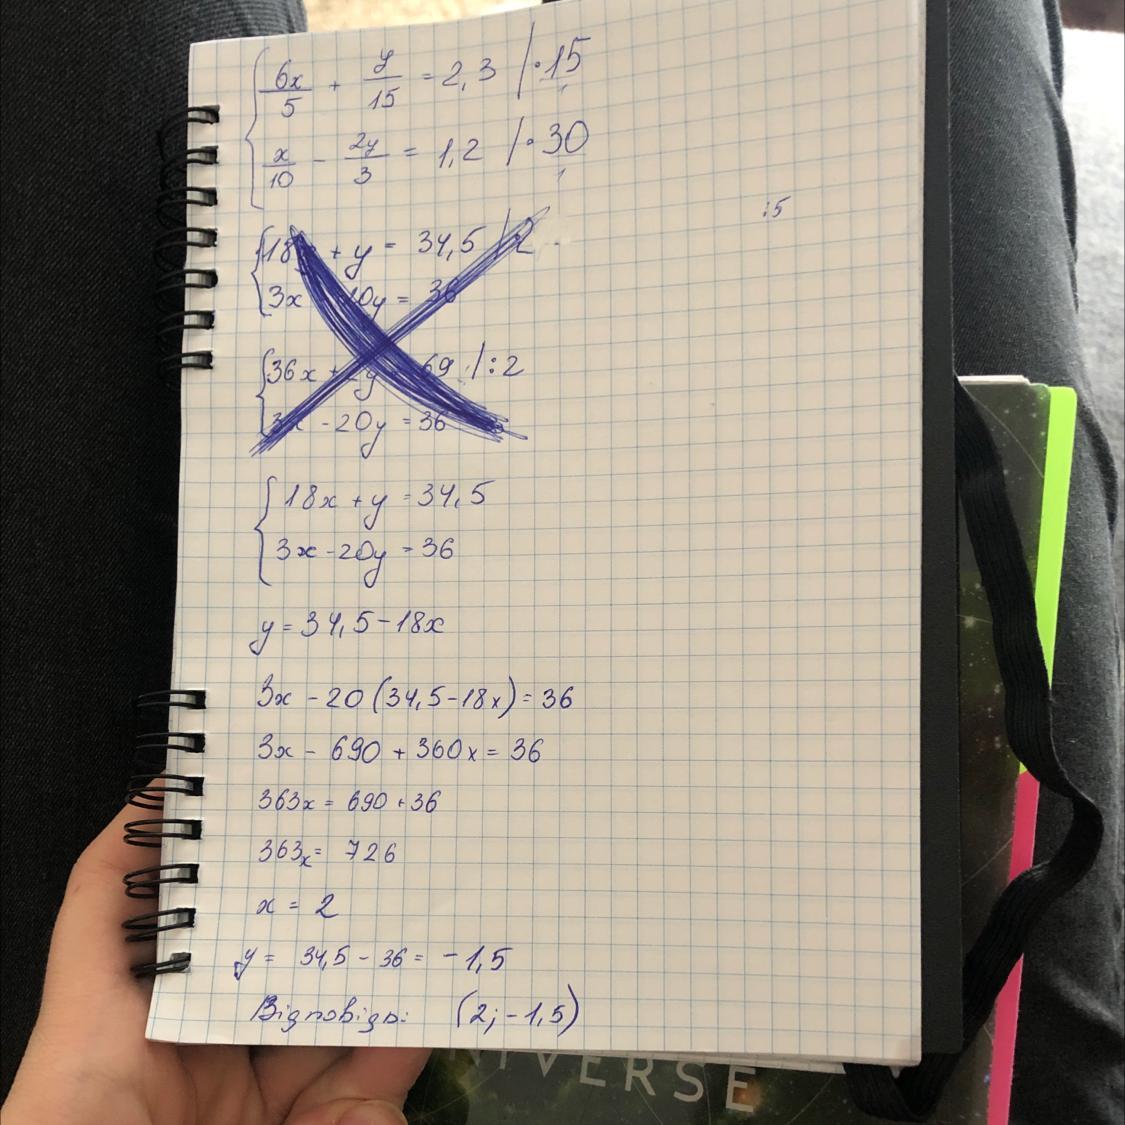 6x/5 + y/15 = 2,3 | · 15
x/10 - 2y/3 = 1,2 | · 30
:5
+ y = 34,5
3x 10y = 36
36x + 69 | : 2
3x - 20y = 36
18x + y = 34,5
3x - 20y = 36
y = 34,5 - 18x
3x - 20 (34,5 - 18x) = 36
3x - 690 + 360x = 36
363x = 690 + 36
363x = 726
x = 2
y = 34,5 - 36 = -1,5
Відповідь: (2; -1,5)
NIVERSE